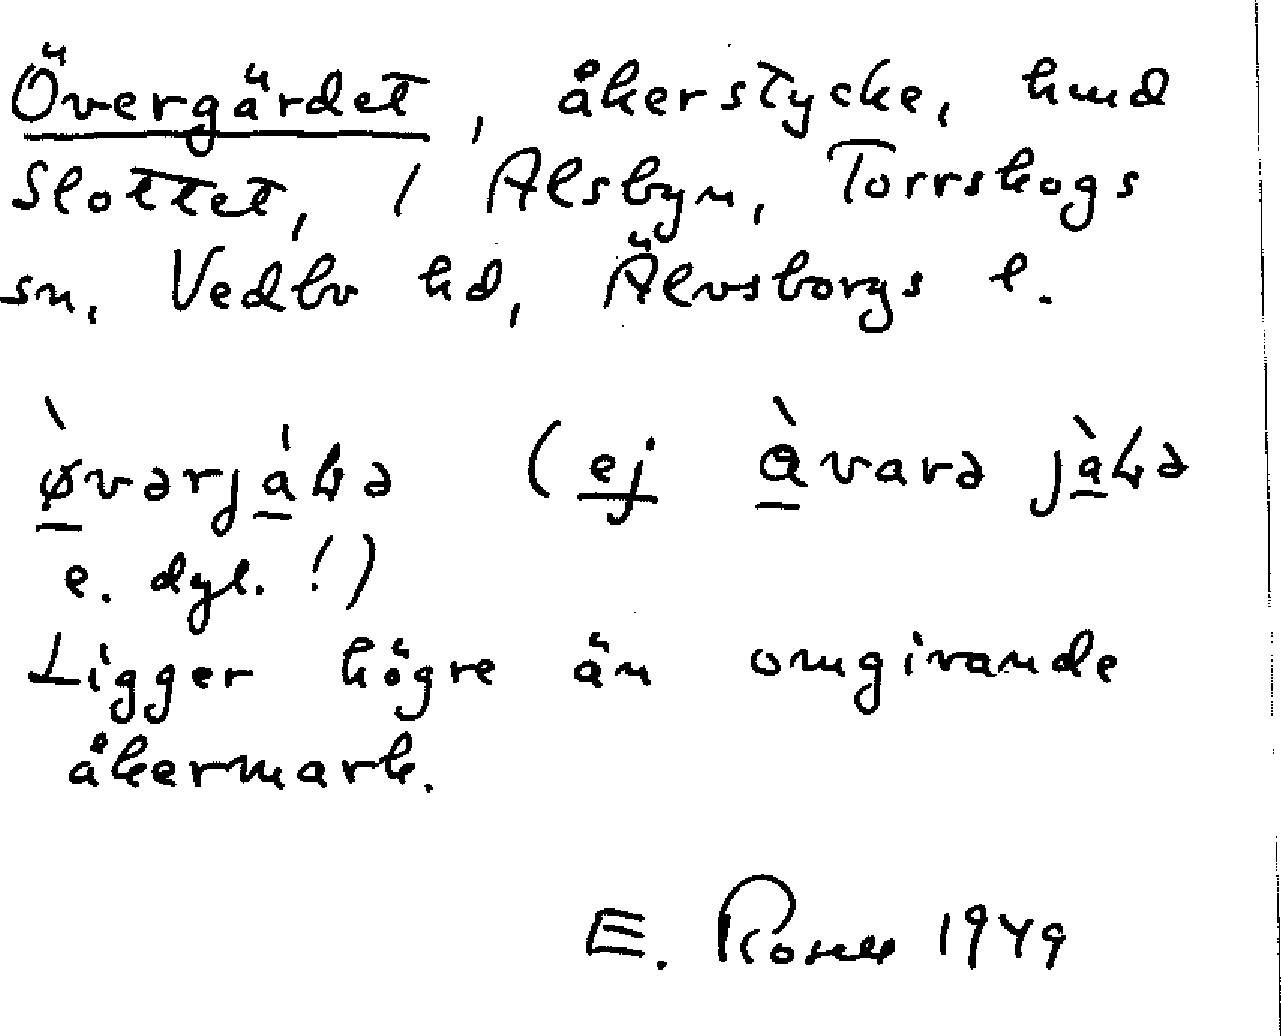 Övergärdet, åkerstycke, hmd
Slottet, / Alsbyn, Torrskogs
sn, Vedbo hd, Älvsborgs l.
(ej
e. dyl.!)
Ligger högre än omgivande
åkermark.
E. Rosell 1949